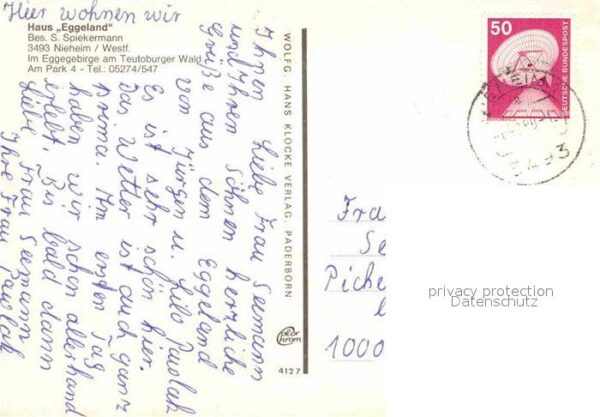 Hier wohnen wir
Haus „Eggeland"
Bes. S. Spiekermann
3493 Nieheim / Westf.
Im Eggegebirge am Teutoburger Wald
Am Park 4 - Tel.: 05274/547
Liebe Frau Seemann
Ihnen
und Ihren Söhnen herzliche
Grüße aus dem Eggeland
von Jürgen u. Lilo Pawlak
Es ist sehr schön hier.
Das Wetter ist auch ganz
prima. Am ersten Tag
haben wir schon allerhand
erlebt. Bis bald dann
Liebe Frau Seemann
Ihre Frau Pawlak
WOLFG. HANS KLOCKE VERLAG, PADERBORN
color chrom
4127
50
DEUTSCHE BUNDESPOST
NIEHEIM
3493
Fra
Se
Piche
1000
privacy protection
Datenschutz